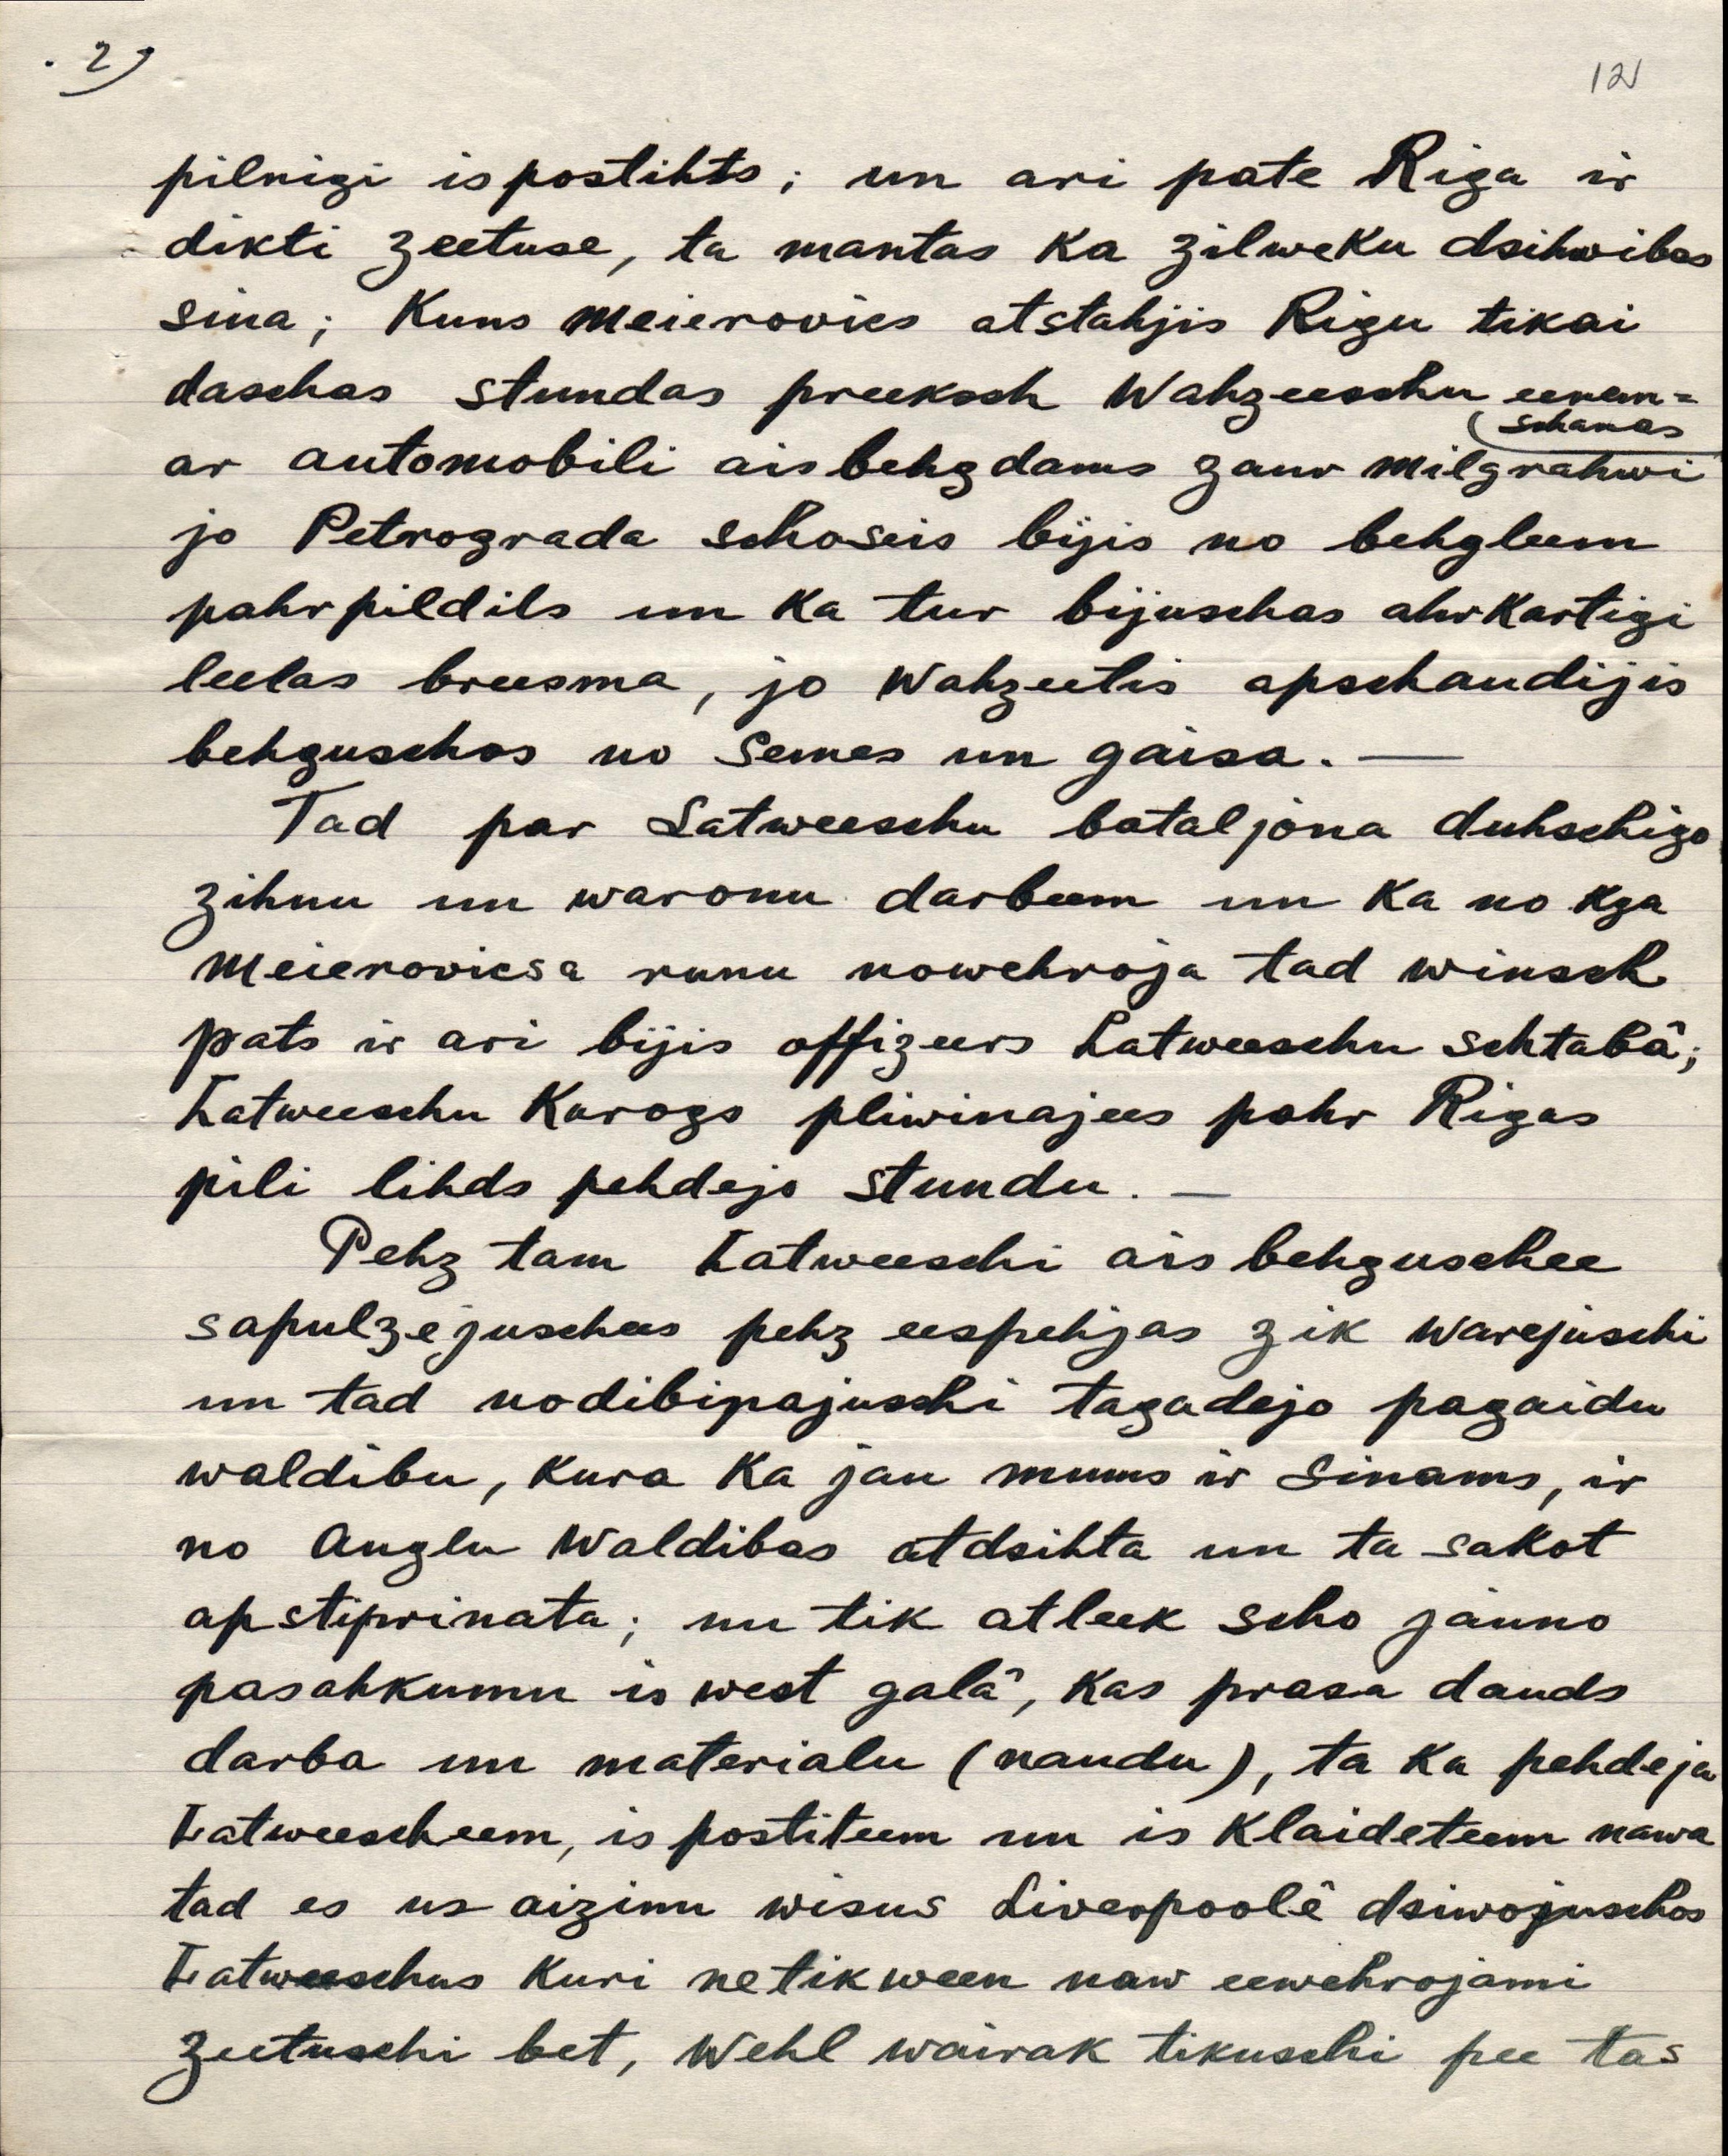 . 2)
12
pilnigi ispostihts; un ari pate Riga ir
dikti zeetuse, ta mantas ka zilweku dsihwibas
sina; Kuns Meierovics atstahjis Rigu tikai
daschas stundas preeksch Wahzeeschu eenem=
schanas
ar automobili aisbehgdams zaur Milgrahwi
jo Petrograda schoseis bijis no behgleem
pahrpildits un ka tur bijuschas ahrkartigi
leelas breesma, jo Wahzeetis apschaudijis
behguschos no Semes un gaisa. —
Tad par Latweeschu bataljona duhschigo
zihnu un waronu darbeem un ka no kga
Meierovicsa runu nowehroja tad winsch
pats ir ari bijis offizeers Latweeschu schtabâ;
Latweeschu Karogs pliwinajees pahr Rigas
pili lihds pehdejo stundu. —
Pehz tam Latweeschi aisbehguschee
sapulzejuschees pehz eespehjas zik warejuschi
un tad nodibinajuschi tagadejo pagaidu
waldibu, kura ka jau mums ir sinams, ir
no Anglu Waldibas atdsihta un ta sakot
apstiprinata; nu tik atleek scho jauno
pasahkumu is west galâ, kas prasa dauds
darba un materialu (naudu), ta ka pehdeja
Latweescheem, is postiteem un is klaideteem nawa
tad es us aizinu wisus Liverpoolê dsiwojuschos
Latweeschus kuri netikween naw eewehrojami
zeetuschi bet, wehl wairak tikuschi pee tas